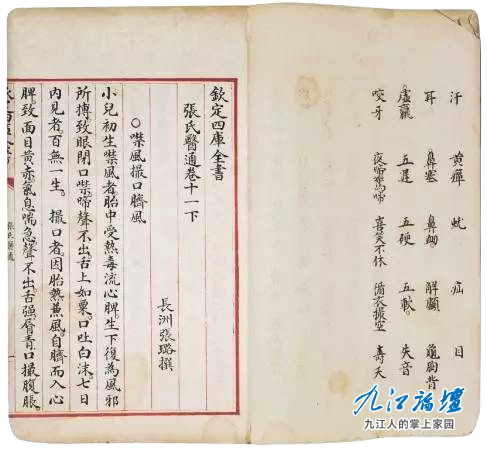 汗 黄癉 蚘 疝 目
耳 鼻塞 鼻衂 解顱 龜胸背
虛羸 五遲 五硬 五軟 失音
咬牙 喜笑不休 循衣撮空 壽夭
欽定四庫全書
張氏醫通卷十一下
長洲張璐撰
○噤風撮口臍風
小兒初生噤風者胎中受熱毒流心脾生下後為風邪
所搏致眼閉口噤啼聲不出舌上如粟口吐白沫七日
内見者百無一生 撮口者因胎熱兼風自臍而入心
脾致面目黄赤氣息喘急聲不出舌强脣青口撮腹脹
九江论坛
九江人的掌上家园